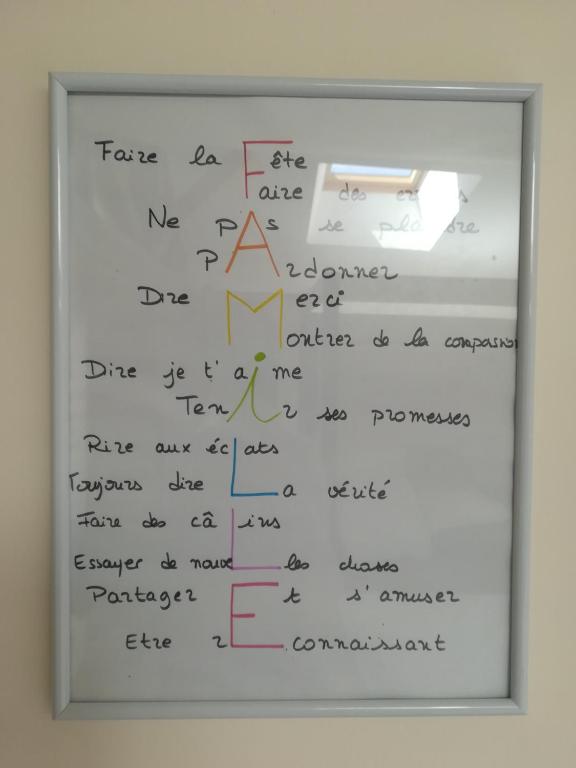 Faire la Fête
Faire des
Ne pAs se plaindre
PArdonner
Dire Merci
Montrer de la compassion
Dire je t'aime
Tenir ses promesses
Rire aux écLats
Toujours dire La vérité
Faire des câLins
Essayer de nouveLles choses
Partager Et s'amuser
Etre rEconnaissant